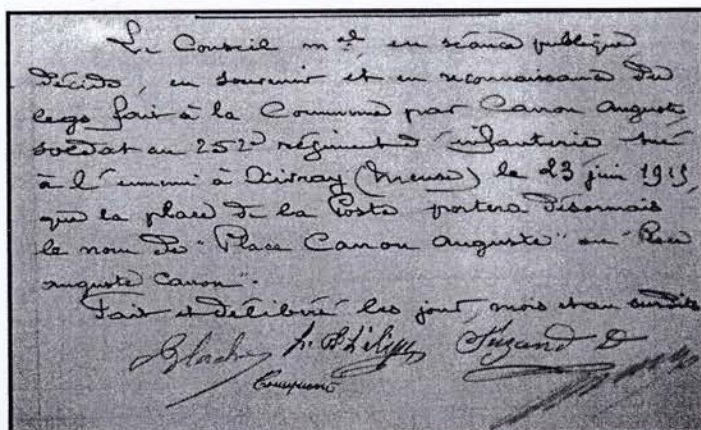 Le Conseil m^al en séance publique
décide, en souvenir et en reconnaissance du
legs fait à la Commune par Canon Auguste
soldat au 252e régiment d'infanterie tué
à l'ennemi à Xivray (Meuse) le 23 juin 1915,
que la place de la Poste portera désormais
le nom de "Place Canon Auguste" ou "Place
Auguste Canon".
Fait et délibéré les jour, mois et an susdits